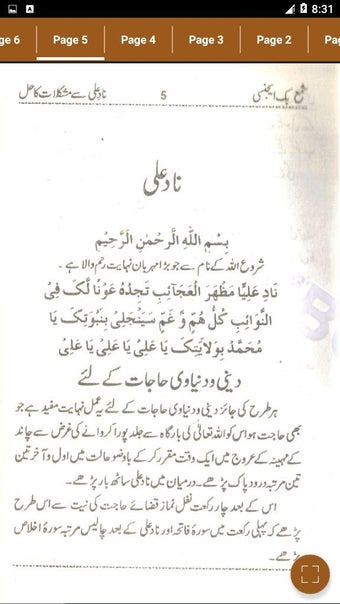 8:31
ge 6 Page 5 Page 4 Page 3 Page 2 Pa
شمع بک ایجنسی 5 نادِ علی سے مشکلات کا حل
نادِ علی
بِسْمِ اللهِ الرَّحْمٰنِ الرَّحِيْمِ
شروع اللہ کے نام سے جو بڑا مہربان نہایت رحم والا ہے ۔
نَادِ عَلِيًّا مَظْهَرَ الْعَجَآئِبِ تَجِدْهُ عَوْنًا لَّكَ فِى
النَّوَآئِبِ كُلُّ هَمٍّ وَّ غَمٍّ سَيَنْجَلِىْ بِنَبُوَّتِكَ يَا
مُحَمَّدُ بِوِلَايَتِكَ يَا عَلِىُّ يَا عَلِىُّ يَا عَلِىُّ
دینی و دنیاوی حاجات کے لئے
ہر طرح کی جائز دینی و دنیاوی حاجات کے لئے یہ عمل نہایت مفید ہے جو
بھی حاجت ہو اس کو اللہ تعالٰی کی بارگاہ سے جلد پورا کروانے کی غرض سے چاند
کے مہینہ کے عروج میں ایک وقت مقرر کر کے باوضو حالت میں اول و آخر تین
تین مرتبہ درود پاک پڑھے ۔ درمیان میں نادِ علی ساٹھ بار پڑھے ۔
اس کے بعد چار رکعت نفل نماز قضائے حاجت کی نیت سے اس طرح
پڑھے کہ پہلی رکعت میں سورۂ فاتحہ اور نادِ علی کے بعد چالیس مرتبہ سورۂ اخلاص
پڑھے ۔